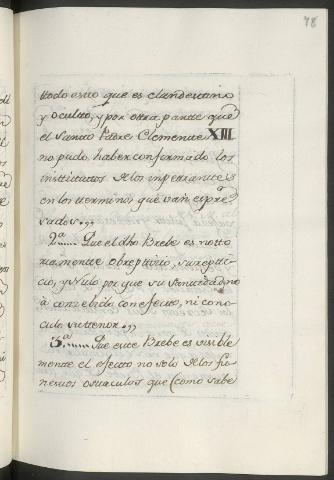 78
ttodo esto que es clandestino
y oculto, y por otra parte que
el Santo Padre Clemente XIII
no pudo haber conformado los
insttitutos de los impetrantes
en los terminos que van expre
sados.,,
2ª..... Que el dho Brebe es noto
riamente obreptivio, surepti
cio, y Nulo por que su Santidad no
à conzebido con efecto, ni cono
cido su tenor.,,
3ª..... Que este Brebe es visible
mente el efecto no solo de los fu
nestos ostaculos que (como sabe